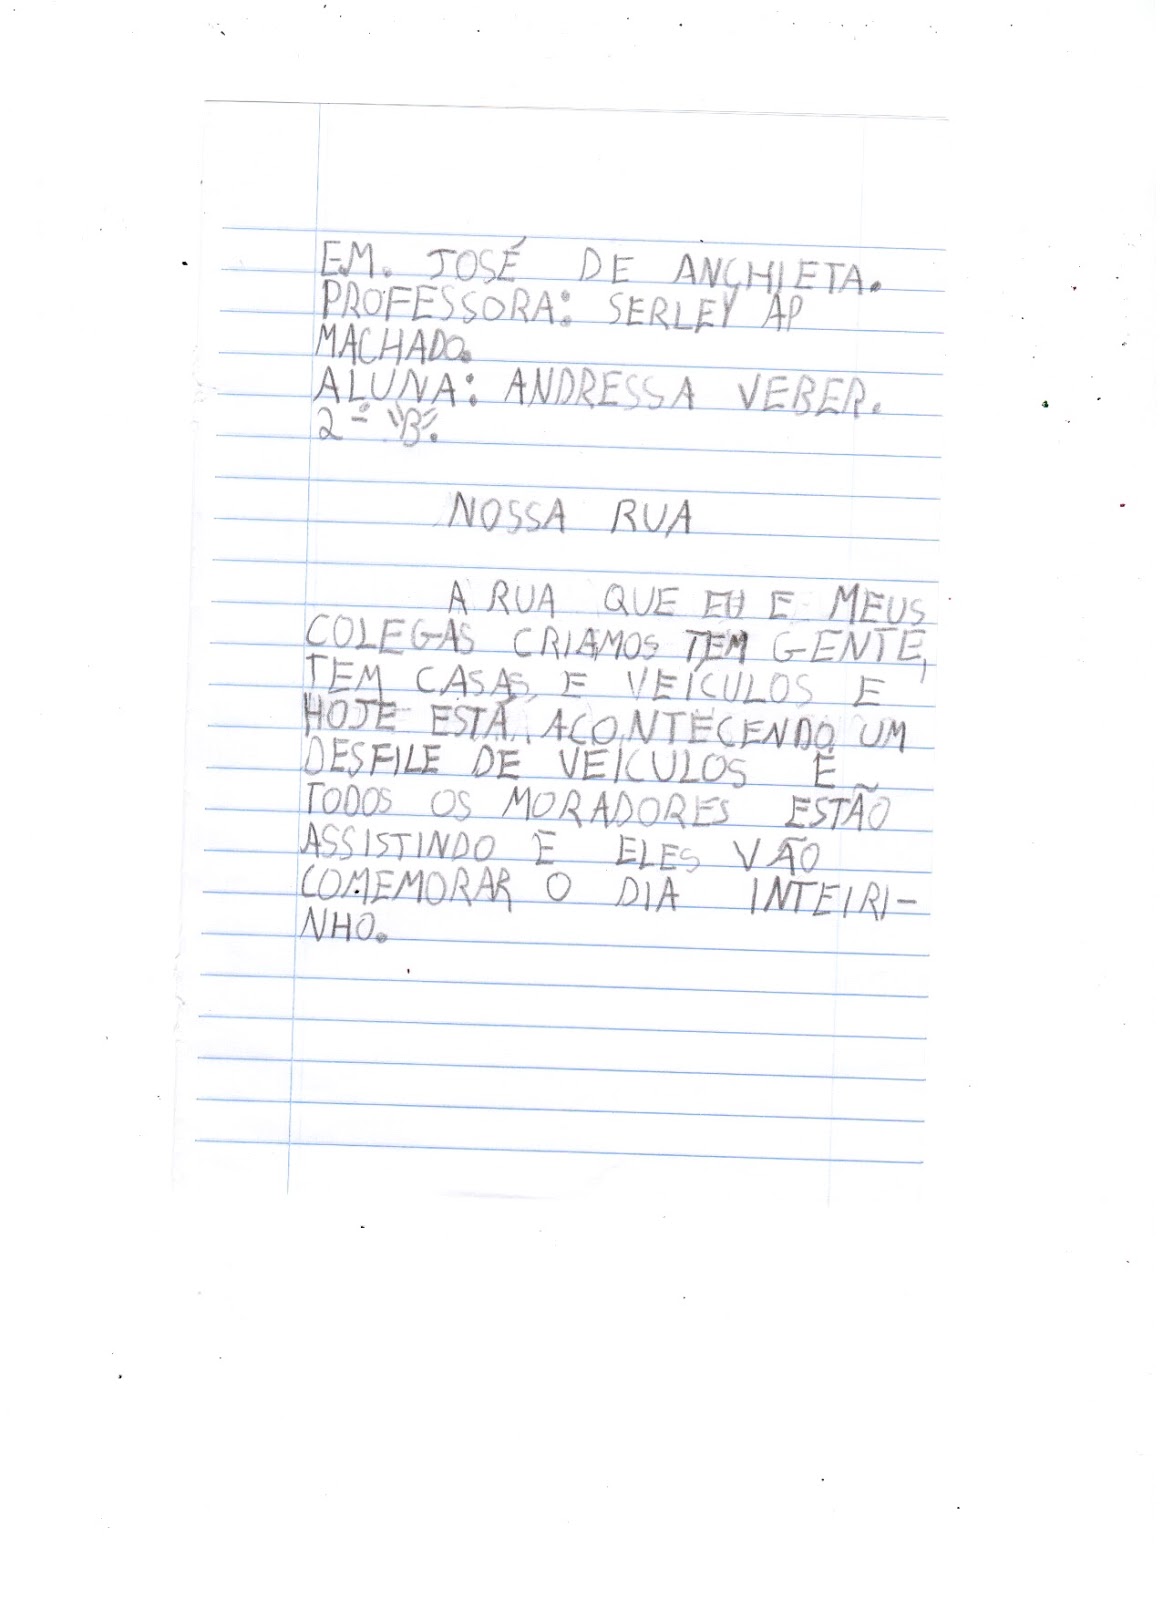 EM. JOSÉ DE ANCHIETA.
PROFESSORA: SERLEY AP
MACHADO.
ALUNA: ANDRESSA VEBER.
2º "B".
NOSSA RUA
A RUA QUE EU E MEUS
COLEGAS CRIAMOS TEM GENTE,
TEM CASAS, E VEÍCULOS E
HOJE ESTÁ ACONTECENDO UM
DESFILE DE VEÍCULOS E
TODOS OS MORADORES ESTÃO
ASSISTINDO E ELES VÃO
COMEMORAR O DIA INTEIRI-
NHO.